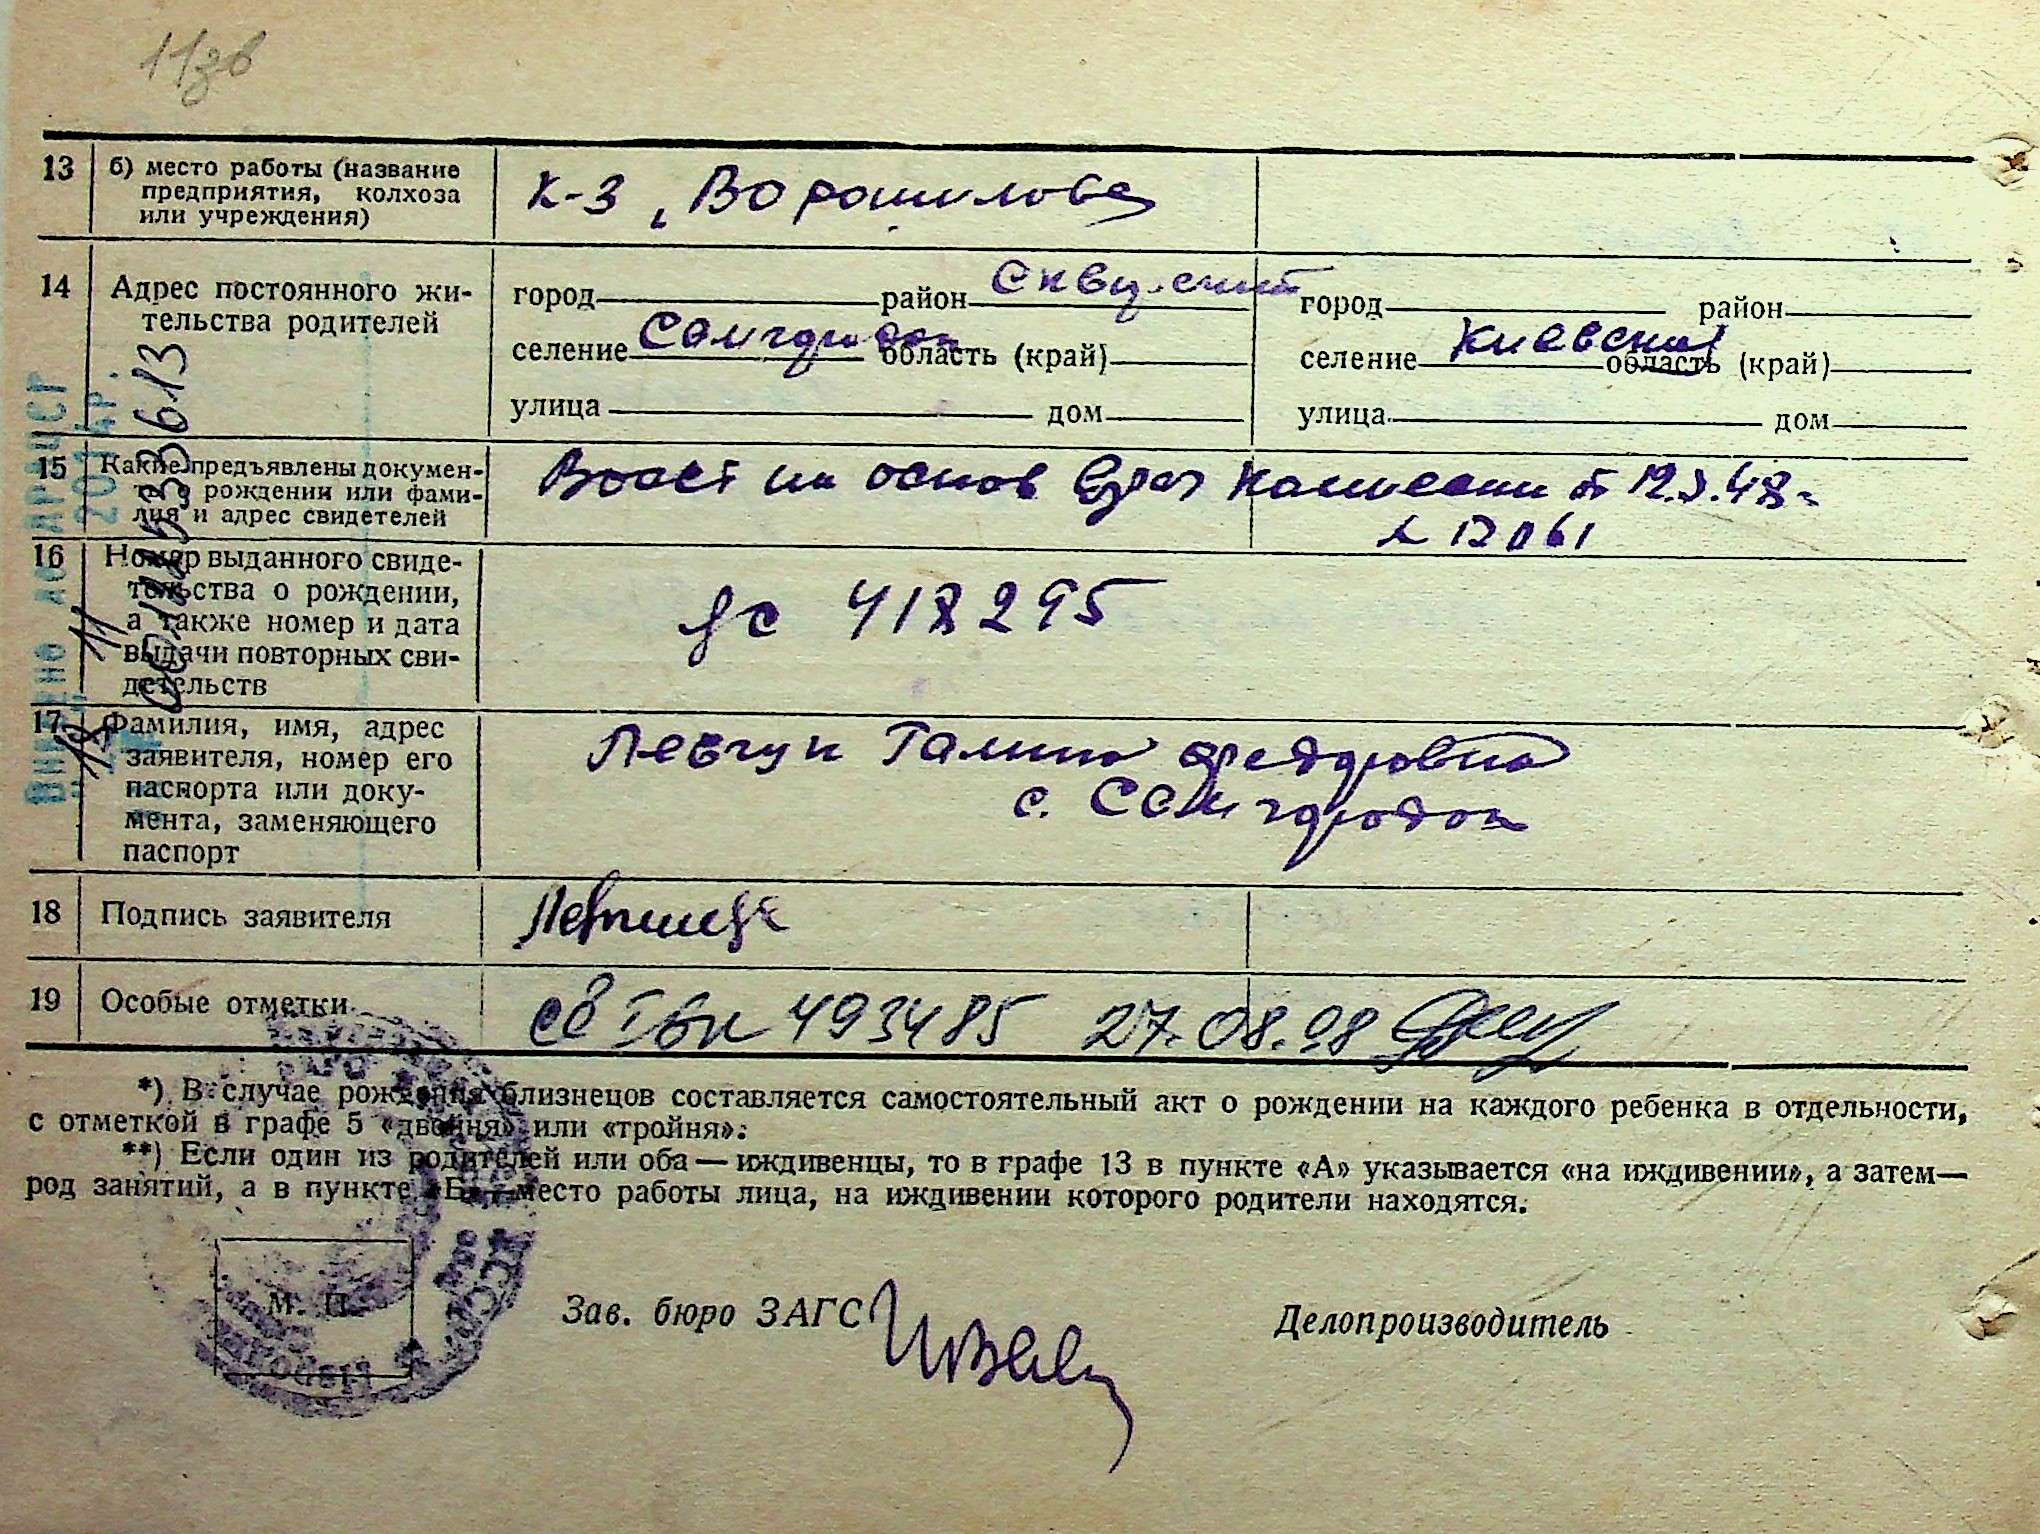 11зв
13 б) место работы (название
предприятия, колхоза
или учреждения)
К-З „Ворошилова
14 Адрес постоянного жи-
тельства родителей
город район Сквирский город район
селение Самгородок область (край) селение Киевская область (край)
улица дом улица дом
15 Какие предъявлены докумен-
ты о рождении или фами-
лия и адрес свидетелей
Восст на основ врач комиссии от 12.
16 Номер выданного свиде-
тельства о рождении,
а также номер и дата
выдачи повторных сви-
детельств
418295
17 Фамилия, имя, адрес
заявителя, номер его
паспорта или доку-
мента, заменяющего
паспорт
Левчук Галина Федоровна
с. Самгородок
18 Подпись заявителя
19 Особые отметки
св 493485 27.08.98
*) В случае рождения близнецов составляется самостоятельный акт о рождении на каждого ребенка в отдельности,
с отметкой в графе 5 «двойня» или «тройня».
**) Если один из родителей или оба — иждивенцы, то в графе 13 в пункте «А» указывается «на иждивении», а затем—
род занятий, а в пункте «Б» место работы лица, на иждивении которого родители находятся.
М. П.
Зав. бюро ЗАГС
Делопроизводитель